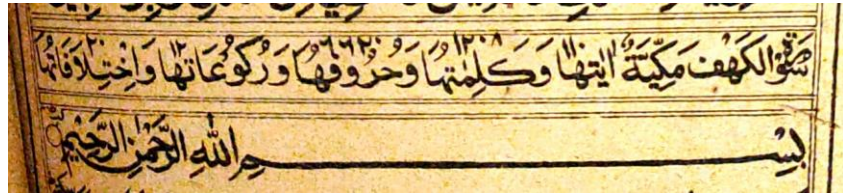 سورة الكهف مكية ايتها ١١١ وكلمتها ١٢٠٨ وحروفها ٦٦٢٠ وركوعاتها ١٢ واختلافاتها ٢٠
بسم الله الرحمن الرحيم